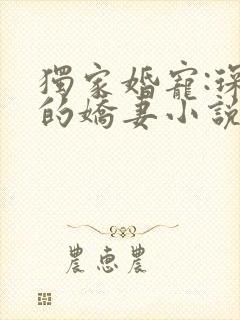 獨家婚寵:琛
的嬌妻小說
農惠農